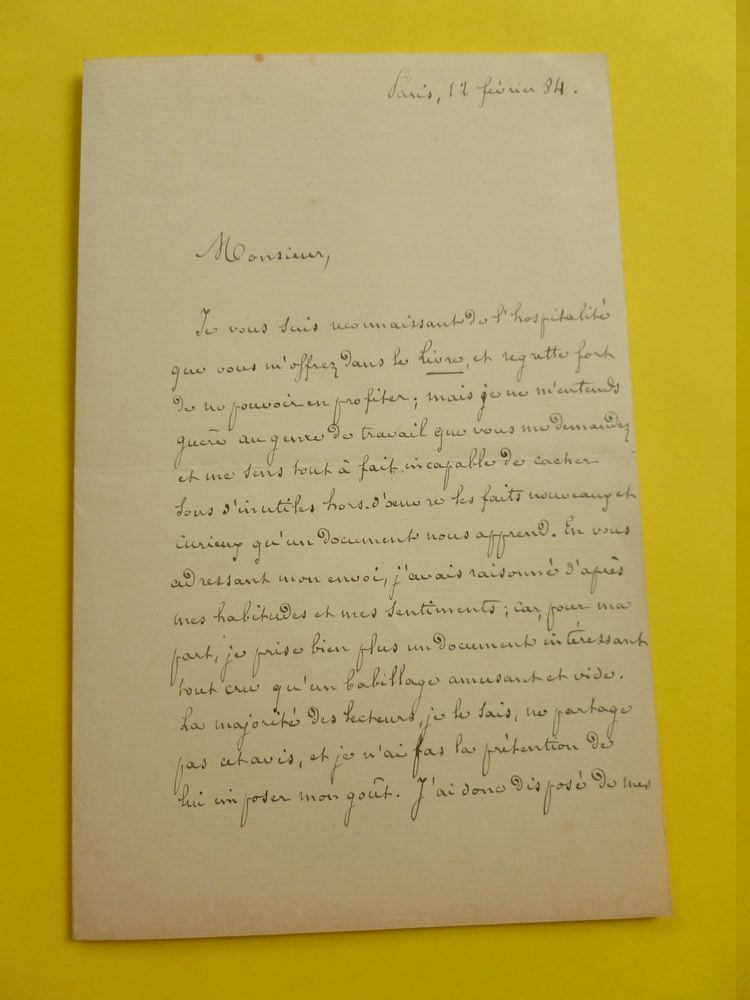 Paris, 12 février 84.
Monsieur,
Je vous suis reconnaissant de l'hospitalité
que vous m'offrez dans le Livre, et regrette fort
de ne pouvoir en profiter; mais je ne m'entends
guère au genre de travail que vous me demandez
et me sens tout à fait incapable de cacher
sous d'inutiles hors-d'œuvre les faits nouveaux et
curieux qu'un document nous apprend. En vous
adressant mon envoi, j'avais raisonné d'après
mes habitudes et mes sentiments; car, pour ma
part, je prise bien plus un document intéressant
tout cru qu'un babillage amusant et vide.
La majorité des lecteurs, je le sais, ne partage
pas cet avis, et je n'ai pas la prétention de
lui imposer mon goût. J'ai donc disposé de mes